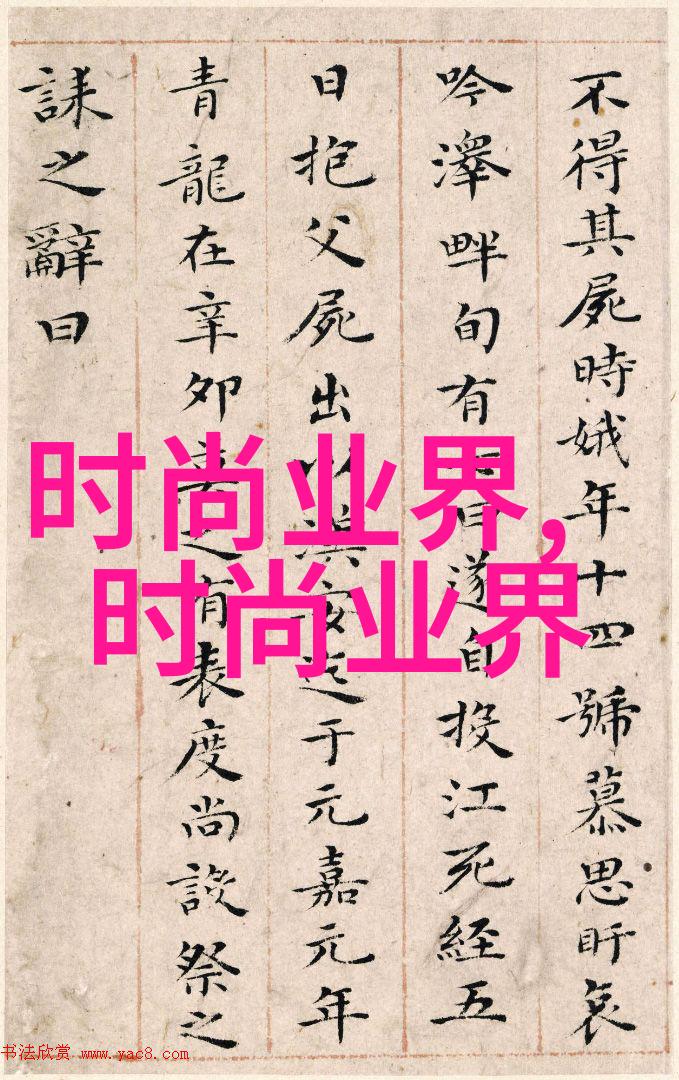 不得其屍時娥年十四號慕思盱哀
吟澤畔旬有日遂自投江死經五
日抱父屍出以漢安迄于元嘉元年
青龍在辛卯之有表度尚設祭之
誄之辭曰
时尚业界,
时尚业界
书法欣赏 www.yac8.com